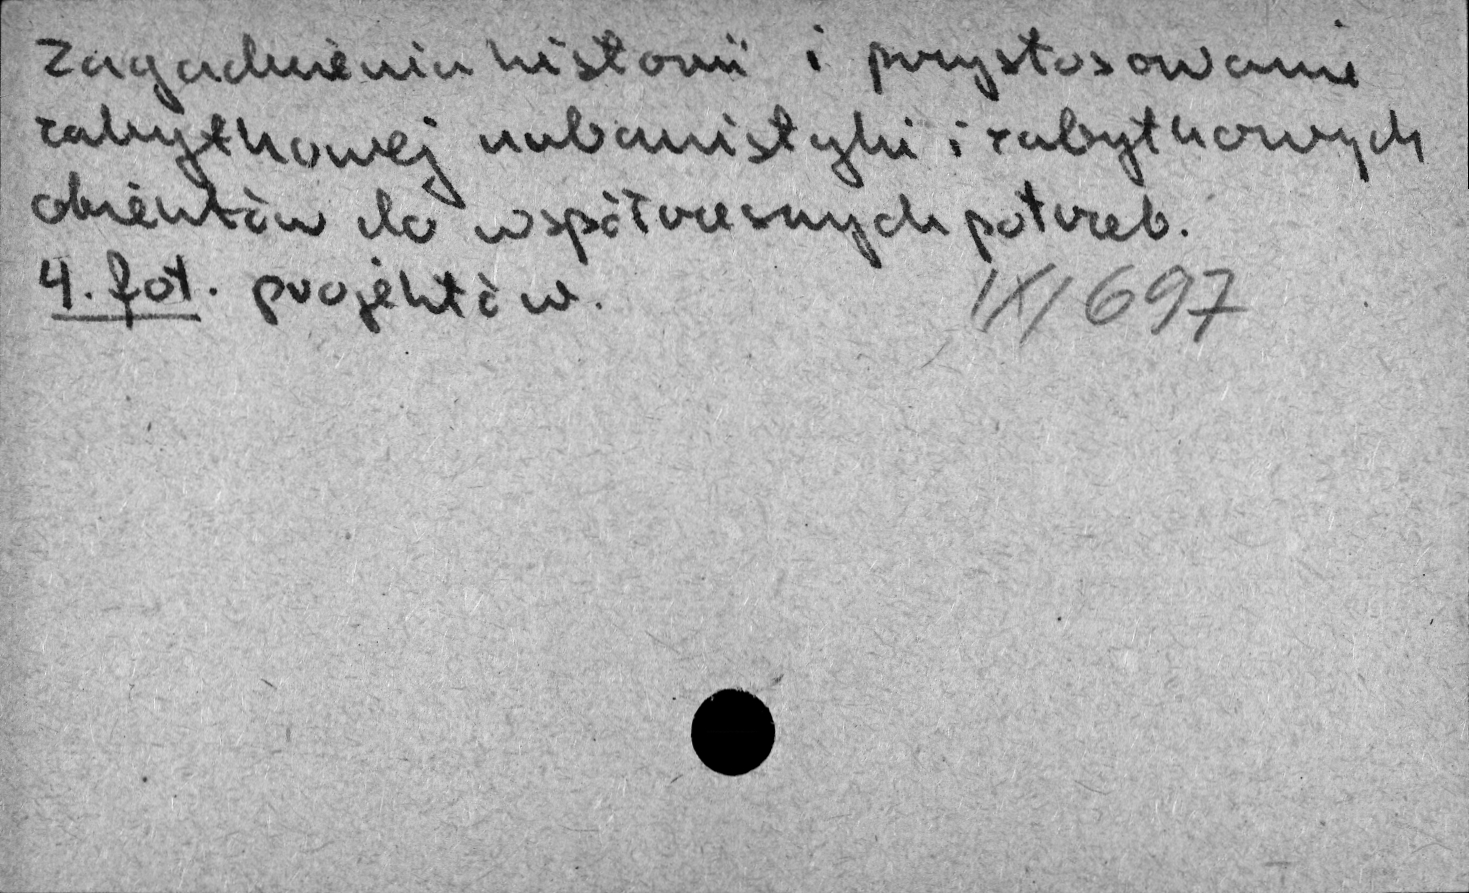 Zagadnienia historii i przystosowanie
zabytkowej urbanistyki i zabytkowych
obiektów do współczesnych potrzeb.
4. fot. projektów. IX/697